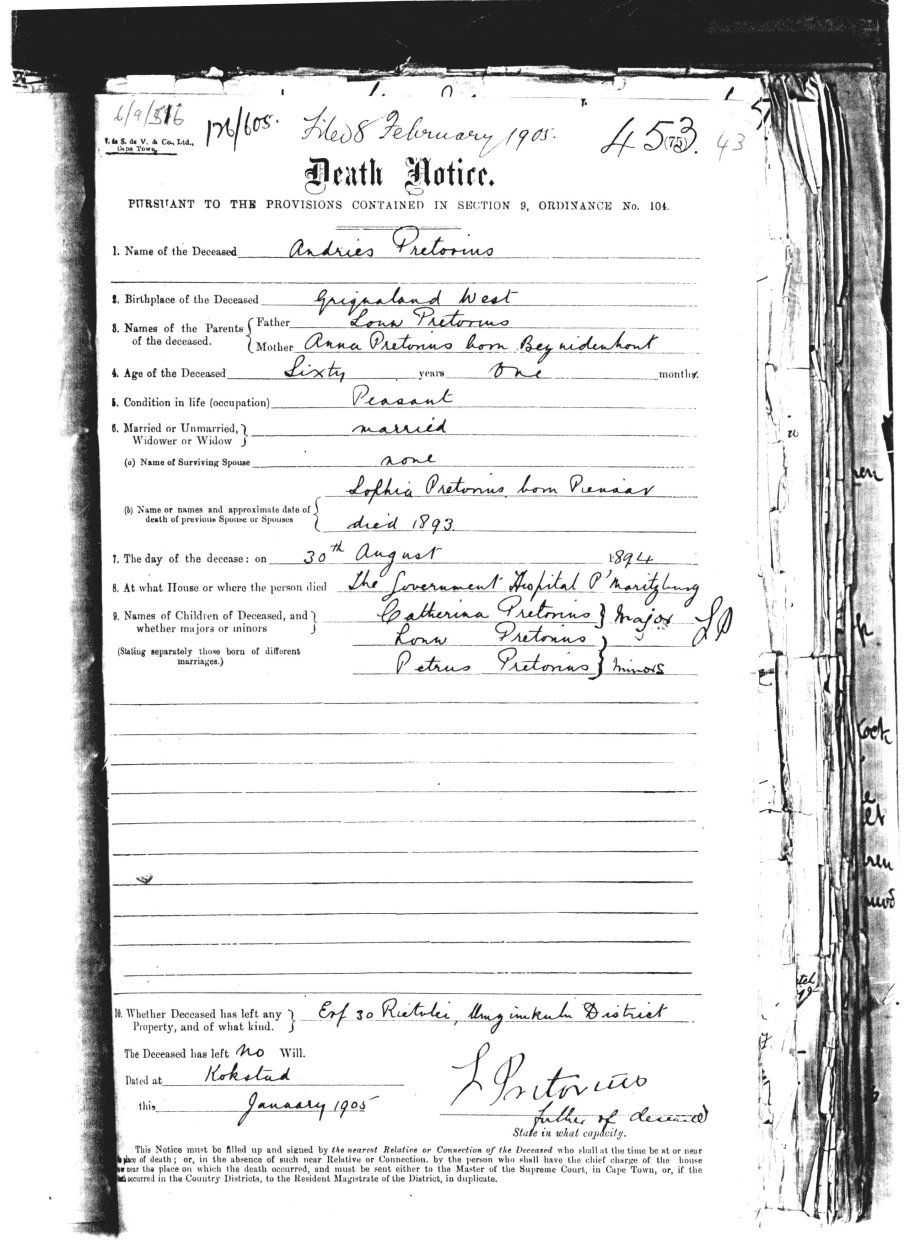 6/9/516
126/605. Filed 8 February 1905. 453. (75) 43
V. de S. de V. & Co., Ltd.,
Cape Town.
Death Notice.
PURSUANT TO THE PROVISIONS CONTAINED IN SECTION 9, ORDINANCE No. 104.
1. Name of the Deceased Andries Pretorius
2. Birthplace of the Deceased Griqualand West
3. Names of the Parents of the deceased. { Father Louw Pretorius
Mother Anna Pretorius born Beyuidenhout
4. Age of the Deceased Sixty years One months.
5. Condition in life (occupation) Peasant
6. Married or Unmarried, Widower or Widow } married
(a) Name of Surviving Spouse none
Sophia Pretorius born Pienaar
(b) Name or names and approximate date of death of previous Spouse or Spouses { died 1893.
7. The day of the decease: on 30th August 1894
8. At what House or where the person died The Government Hospital P'Maritzburg
9. Names of Children of Deceased, and whether majors or minors } Catherina Pretorius } Major LP
Louw Pretorius
(Stating separately those born of different marriages.) Petrus Pretorius } minors
10. Whether Deceased has left any Property, and of what kind. } Erf 30 Rietvlei, Umzimkulu District
The Deceased has left No Will.
Dated at Kokstad
L Pretorius
this January 1905
father of deceased
State in what capacity.
This Notice must be filled up and signed by the nearest Relative or Connection of the Deceased who shall at the time be at or near
place of death; or, in the absence of such near Relative or Connection, by the person who shall have the chief charge of the house
near the place on which the death occurred, and must be sent either to the Master of the Supreme Court, in Cape Town, or, if the
occurred in the Country Districts, to the Resident Magistrate of the District, in duplicate.